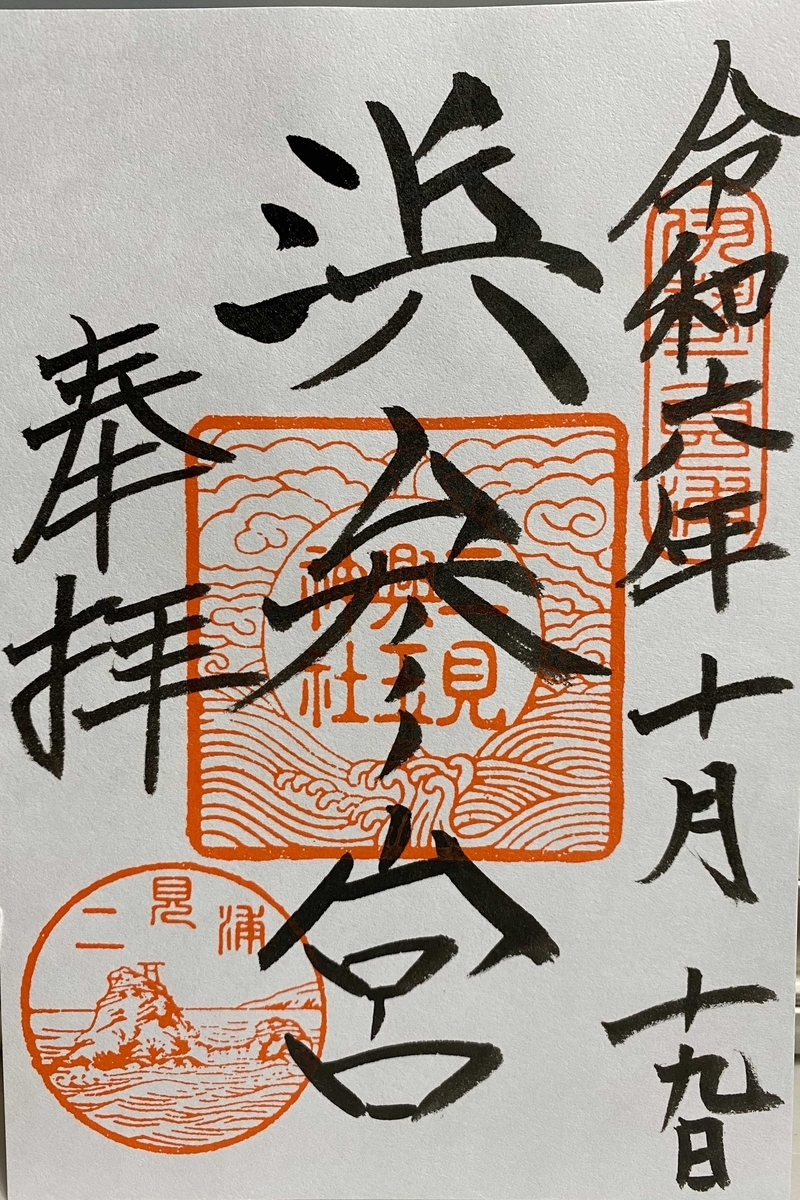 令和六年十月十九日
伊勢二見浦
浜参宮
二見
興玉
神社
奉拝
二見浦